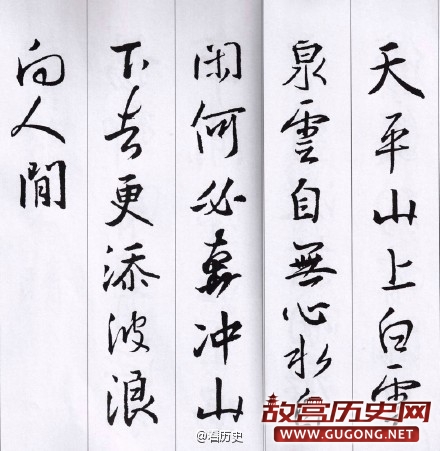 天平山上白雲
泉雲自無心水自
闲何必奔冲山
下去更添波浪
向人間
故宫历史网
WWW.GUGONG.NET
@看历史